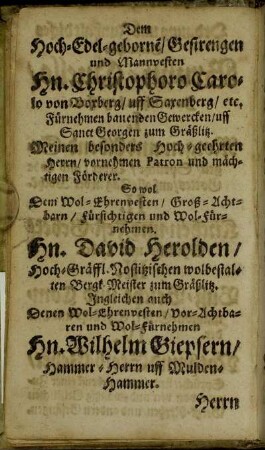 Dem
Hoch-Edel-gebornē/Gestrengen
und Mannvesten
Hn. Christophoro Caro-
lo von Boxberg/uff Saxenberg/etc,
Fürnehmen bauenden Gewercken/uff
Sanct Georgen zum Gräßlitz.
Meinen besonders Hoch-geehrten
Herrn/vornehmen Patron und mäch-
tigen Förderer.
So wol
Dem Wol-Ehrenvesten/Groß-Acht-
barn/Fürsichtigen und Wol-Für-
nehmen.
Hn. David Herolden/
Hoch-Gräffl. Nostitzischen wolbestal-
ten Bergk-Meister zum Gräßlitz.
Ingleichen auch
Denen Wol-Ehrenvesten/Vor-Achtba-
ren und Wol-Fürnehmen
Hn. Wilhelm Giepsern/
Hammer-Herrn uff Mulden-
Hammer.
Herrn